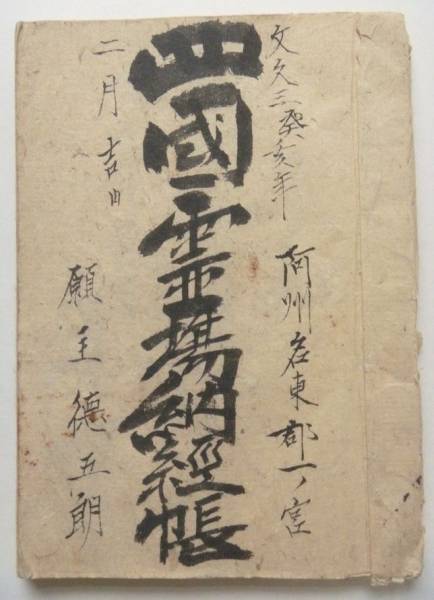 文久三癸亥年
阿州名東郡一ノ宮
四國霊場納經帳
二月吉日
願主徳五朗